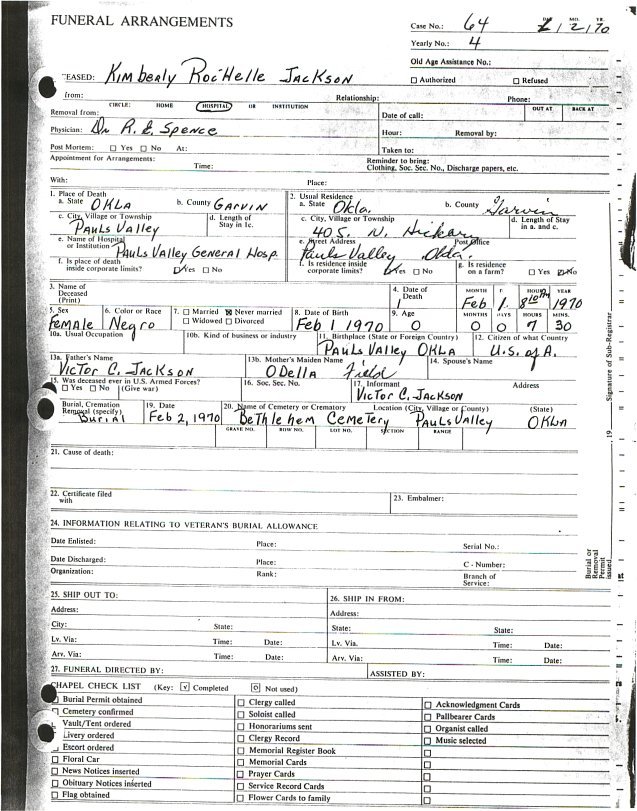 FUNERAL ARRANGEMENTS
Case No.: 64 DAY MO. YR.
2 70
Yearly No.: 4
Old Age Assistance No.:
EASED: Kimbealy Rochelle Jackson
☐ Authorized ☐ Refused
from: Relationship: Phone:
CIRCLE: HOME HOSPITAL OR INSTITUTION
OUT AT BACK AT
Removal from: Date of call:
Physician: Dr R. E. Spence
Hour: Removal by:
Post Mortem: ☐ Yes ☐ No At:
Taken to:
Appointment for Arrangements: Time:
Reminder to bring:
Clothing, Soc. Sec. No., Discharge papers, etc.
With: Place:
1. Place of Death
a. State OKLA b. County GARVIN
2. Usual Residence
a. State Okla. b. County Garvin
c. City, Village or Township Pauls Valley
d. Length of Stay in 1c.
c. City, Village or Township 405 N. Hickory
d. Length of Stay in a. and c.
e. Name of Hospital or Institution Pauls Valley General Hosp.
e. Street Address Post Office
Pauls Valley Okla.
f. Is place of death inside corporate limits? ☑ Yes ☐ No
f. Is residence inside corporate limits? ☑ Yes ☐ No
g. Is residence on a farm? ☐ Yes ☑ No
3. Name of Deceased (Print)
4. Date of Death
MONTH HOUR YEAR
Feb 1 8 10 PM 1970
5. Sex Female
6. Color or Race Negro
7. ☐ Married ☒ Never married
☐ Widowed ☐ Divorced
8. Date of Birth Feb 1 1970
9. Age 0
MONTHS DAYS HOURS MINS.
0 0 7 30
10a. Usual Occupation
10b. Kind of business or industry
11. Birthplace (State or Foreign Country)
Pauls Valley OKLA
12. Citizen of what Country
U.S. of A.
13a. Father's Name
Victor C. Jackson
13b. Mother's Maiden Name
Odella Field
14. Spouse's Name
15. Was deceased ever in U.S. Armed Forces?
☐ Yes ☐ No (Give war)
16. Soc. Sec. No.
17. Informant Address
Victor C. Jackson
Burial, Cremation
Removal (specify)
Burial
19. Date
Feb 2, 1970
20. Name of Cemetery or Crematory Location (City, Village or County) (State)
Bethlehem Cemetery Pauls Valley OKLA
GRAVE NO. ROW NO. LOT NO. SECTION RANGE
21. Cause of death:
22. Certificate filed with
23. Embalmer:
24. INFORMATION RELATING TO VETERAN'S BURIAL ALLOWANCE
Date Enlisted: Place: Serial No.:
Date Discharged: Place: C - Number:
Organization: Rank: Branch of Service:
25. SHIP OUT TO:
26. SHIP IN FROM:
Address:
Address:
City: State:
State: State:
Lv. Via: Time: Date:
Lv. Via. Time: Date:
Arv. Via: Time: Date:
Arv. Via: Time: Date:
27. FUNERAL DIRECTED BY: ASSISTED BY:
CHAPEL CHECK LIST (Key: ☑ Completed ☐ Not used)
Burial Permit obtained
☐ Cemetery confirmed
Vault/Tent ordered
Livery ordered
Escort ordered
☐ Floral Car
News Notices inserted
☐ Obituary Notices inserted
☐ Flag obtained
☐ Clergy called
☐ Soloist called
☐ Honorariums sent
☐ Clergy Record
☐ Memorial Register Book
☐ Memorial Cards
☐ Prayer Cards
☐ Service Record Cards
☐ Flower Cards to family
☐ Acknowledgment Cards
☐ Pallbearer Cards
☐ Organist called
☐ Music selected
Signature of Sub-Registrar
19
Burial or
Removal
Permit
issued